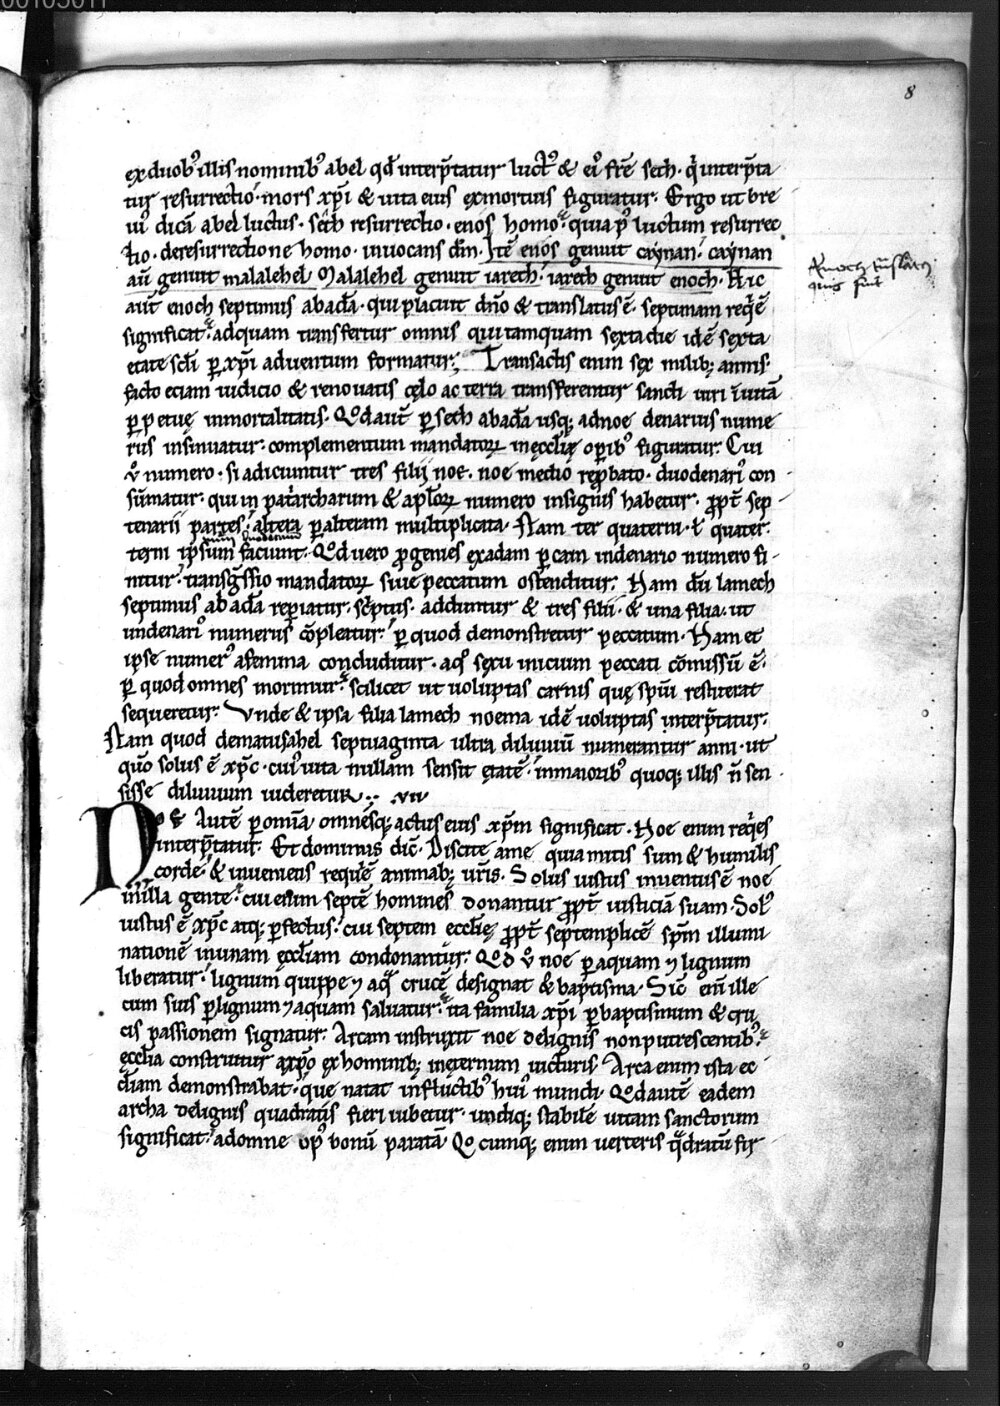 00105011
8
ex duobꝰ illis nominibꝰ abel qđ interp̄tatur luctꝰ & eiꝰ fr̄e seth · q̇ interp̄ta
tur resurrectio · mors xp̄i & uita eius ex mortuis figuratur · Ergo ut bre
uiꝰ dicā abel luctus · seth resurrectio · enos homo · quia p̱ luctum resurrec
tio · de resurrectione homo · inuocans dm̄ · Itē enos genuit caynan · caynan
aū genuit malalehel Malalehel genuit iareth · iareth genuit enoch · Hic
aūt enoch septimus ab adā · qui placuit dn̄o & translatus ē · septimam reꝗ̄ē
significat · ad quam transfertur omnis qui tamquam sexta die idē sexta
etate sc̄li p̱ xp̄i aduentum formatur · Transactis enim sex milibꝫ annis ·
facto etiam iudicio & renouatis cęlo ac terra transferentur sancti uiri ī uitā
p̱petuę inmortalitatis · Qđ aūt p̱ seth ab adā usqꝫ ad noe denarius nume
rus insinuatur · complementum mandatoꝝ in ęcclīę op̱ibꝰ figuratur · Cui
v̊ numero · si adiciuntur tres filij noe · noe medio rep̱bato · duodenariꝰ con
sūmatur · qui in pat̄archarum & ap̄loꝝ numero insignis habetur · ꝓpt̄ sep
tenarii partes · altera p̱ alteram multiplicata · Nam ter quaterni · ł quater
num duodenarium
terni ipsum faciunt · Qđ uero ꝓgenies ex adam p̱ cain undenario numero fi
nitur · transg̃ssio mandatoꝝ siue peccatum ostenditur · Nam dū lamech
septimus ab adā rep̱iatur · sc̄ptus · adduntur & tres filii · & una filia · ut
undenariꝰ numerus cōpleatur · p̱ quod demonstretur peccatum · Nam et
ipse numerꝰ a femina concluditur · a q̊ sexu inicium peccati cōmissū ē ·
p̱ quod omnes morimur · scilicet ut uoluptas carnis quę sp̄ui restiterat
sequeretur · Vnde & ipsa filia lamech noema idē uoluptas interp̄tatur ·
Nam quod de matusahel septuaginta ultra diluuiū numerantur anni · ut
quō solus ē xp̄c · cuiꝰ uita nullam sensit ętatē · in maioribꝰ quoqꝫ illis ñ sen
sisse diluuium uideretur · · VII
Noe Autē p̱ omīa omnesqꝫ actus eius xp̄m significat · Noe enim reꝗ̄es
interp̄tatur · Et dominus dic̄ · Discite a me quia mitis sum & humilis
corde · & inuenietis reꝗ̄ē animabꝫ ur̄is · Solus iustus inuentus ē noe
in illa gente · cui etiam septē homines donantur ꝓpt̄ iusticiā suam · Solꝰ
iustus ē xp̄c atqꝫ p̱fectus · cui septem ecclīę ꝓpt̄ septemplicē sp̄m illumi
nationē in unam ęccl̄iam condonantur · Qđ v̊ noe p̱ aquam ⁊ lignum
liberatur · lignum quippe ⁊ aq̃ crucē designat & baptisma · Sic̄ em̄ ille
cum suis p̱ lignum ⁊ aquam saluatur · ita familia xp̄i p̱ baptismum & cru
cis passionem signatur · Arcam instruxit noe de lignis non putrescentibꝰ ·
ęcclīa construitur a xp̄o ex hominibꝫ in ęternum uicturis · Arca enim ista ec
cl̄iam demonstrabat · quę natat in fluctibꝰ huiꝰ mundi · Qđ autē eadem
archa de lignis quadratis fieri iubetur · undiqꝫ stabilē uitam sanctorum
significat · ad omne opꝰ bonū paratā · Q̊ cumqꝫ enim uerteris q̃dratū fir